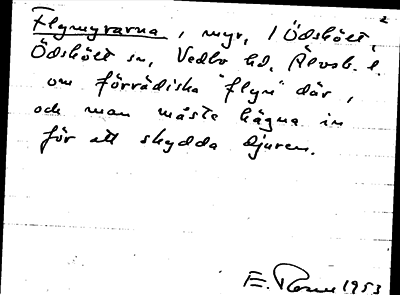 2
Flymyrarna, myr, i Ödskölt,
Ödskölt sn, Vedbo hd, Älvsb. l.
om förrädiska "flyn" där,
och man måste hägna in
för att skydda djuren.
E. 1953